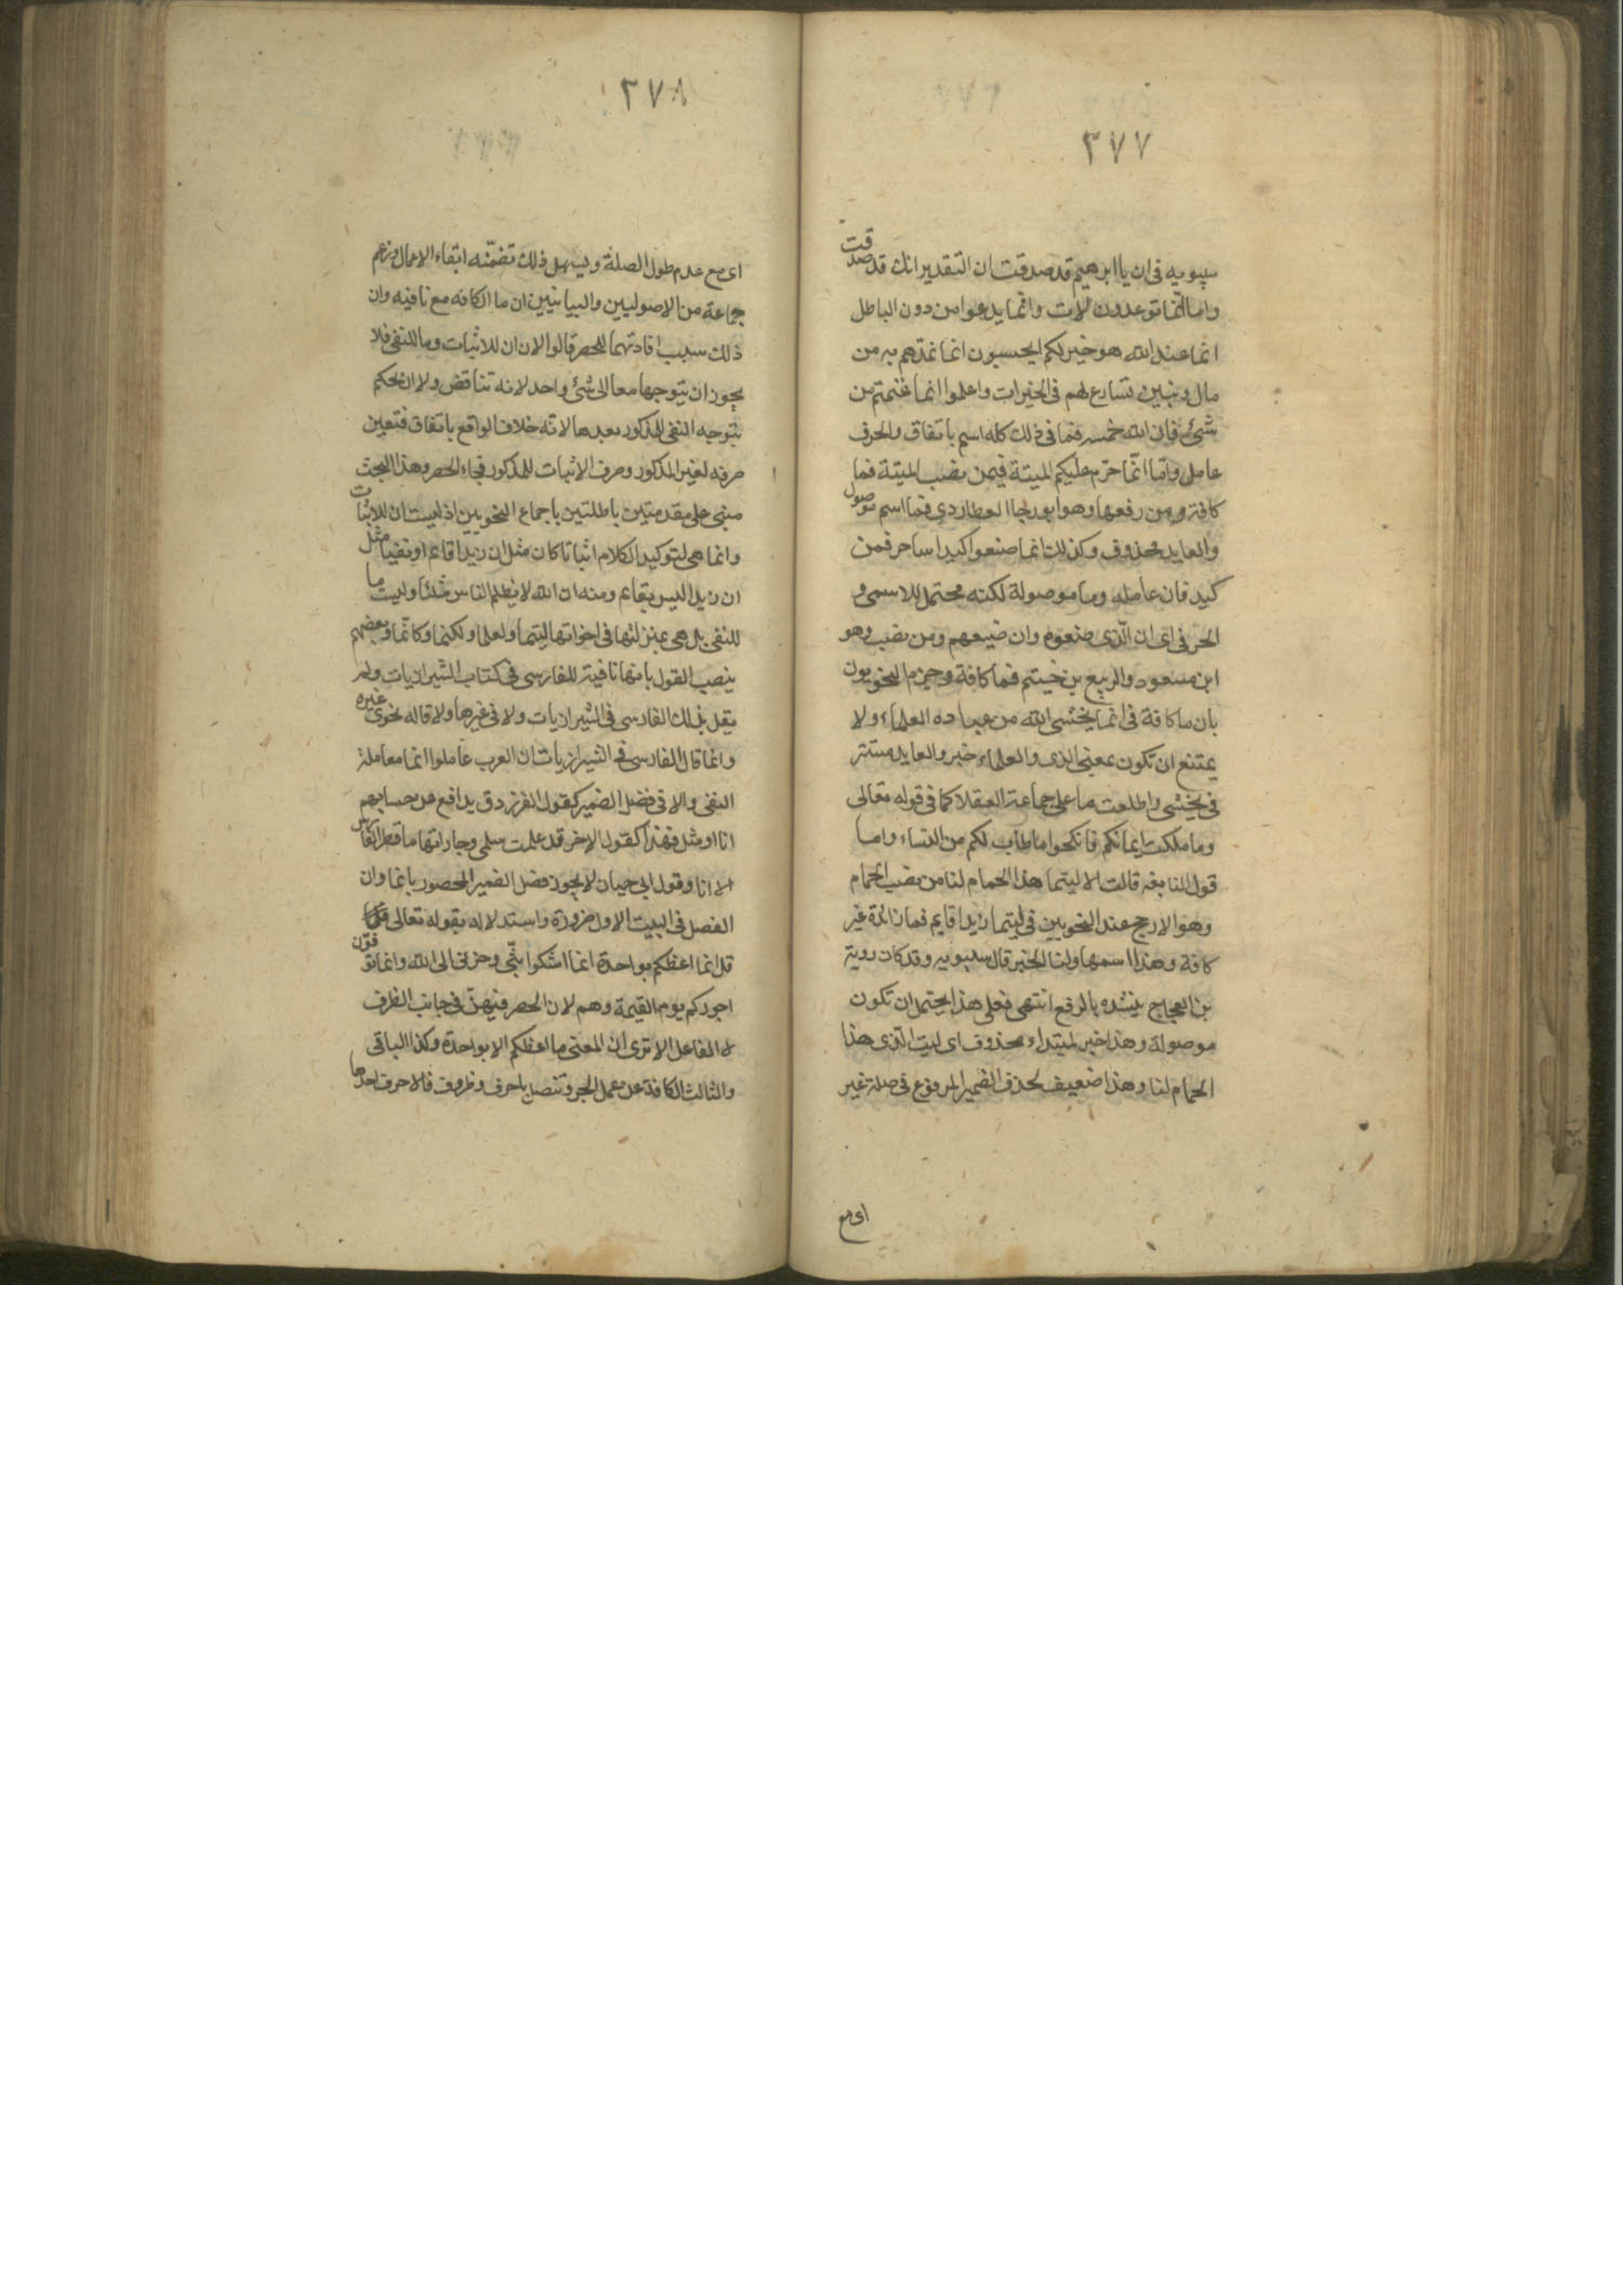 ٣٧٧
سيبويه فى ان يا ابرهيم قد صدقت ان التقدير انك قد صدقت
واما انّما توعدون لات وانما يدعوا من دون الباطل
انما عند الله هو خير لكم ايحسبون انما نمدهم به من
مال وبنين نسارع لهم فى الخيرات واعلموا انما غنمتم من
شئ فان لله خمسه فما فى ذلك كله اسم باتفاق والحرف
عامل وامّا انّما حرّم عليكم الميتة فيمن نصب الميتة فما
كافة ومن رفعها وهو ابو رجا العطاردى فما اسم موصول
والعايد محذوف وكذلك انما صنعوا كيد ساحر فمن
كيد فان عامله وما موصولة لكنه محتمل للاسمى و
الحرفى اى ان الّذى صنعوه وان صنيعهم ومن نصب وهو
ابن مسعود والربيع بن خيثم فما كافة وجزم النحويون
بان ما كافة فى انما يخشى الله من عباده العلماء ولا
يمتنع ان تكون بمعنى الذى والعلماء خبر والعايد مستتر
فى يخشى واطلعت ما على جماعة العقلا كما فى قوله تعالى
وما ملكت ايمانكم فانكحوا ما طاب لكم من النساء واما
قول النابغه قالت الا ليتما هذا الحمام لنا من نصب الحمام
وهو الارجح عند النحويين فى ليتما زيدا قايم فما زائدة غير
كافة وهذا اسمها ولنا الخبر قال سيبويه وقد كان روبة
بن العجاج ينشده بالرفع انتهى فعلى هذا يحتمل ان تكون
موصولة وهذا خبر لمبتداء محذوف اى ليت الذى هذا
الحمام لنا وهذا ضعيف لحذف الضمير المرفوع فى صلة غير
اى مع
٣٧٨
اى مع عدم طول الصلة ويسهل ذلك تضمّنه ابقاء الاعمال وزعم
جماعة من الاصوليين والبيانيين ان ما الكافه مع نافيه وان
ذلك سبب افادتهما للحصر قالوا لان ان للاثبات وما للنفى فلا
يجوز ان يتوجها معا الى شئ واحد لانه تناقض ولا ان يحكم
بتوجيه النفى للمذكور بعدها لانّه خلاف الواقع باتفاق فتعين
صرفه لغير المذكور وصرف الاثبات للمذكور فجاء الحصر وهذا البحث
مبنى على مقدمتين باطلتين باجماع النحويين اذ ليست ان للاثبات
وانما هى لتوكيد الكلام اثباتا كان مثل ان زيدا قائم او نفيا مثل
ان زيدا ليس بقائم ومنه ان الله لا يظلم الناس شئا وليست ما
للنفى بل هى بمنزلتها فى اخواتها ليتما ولعلما ولكنما وكانّما وبعضهم
ينصب القول بانها نافية للفارسى فى كتاب الشيرازيات ولم
يقل ذلك الفارسى فى الشيرازيات ولا فى غيرها ولا قاله نحوى غيره
وانما قال الفارسى فى الشيرازيات ان العرب عاملوا انما معاملة
النفى والا فى فصل الضمير كقول الفرزدق يدافع عن حسابهم
انا او مثل فهذا كقول الاخر قد علمت سلمى وجاراتها ما قطر الفارس
الا انا وقول ابى حيان لا يجوز فصل الضمير المحصور بانما وان
الفصل فى البيت الاول ضرورة واستدلاله بقوله تعالى
قل انما اعظكم بواحدة انما اشكوا بثّى وحزنى الى الله وانما توفّون
اجوركم يوم القيمة وهم لان الحصر فيهنّ فى جانب الظرف
لا الفاعل الا ترى ان المعنى ما اعظكم الا بواحدة وكذا الباقى
والثالث الكافة عن عمل الجر وتتصل باحرف وظروف فالاحرف احدها